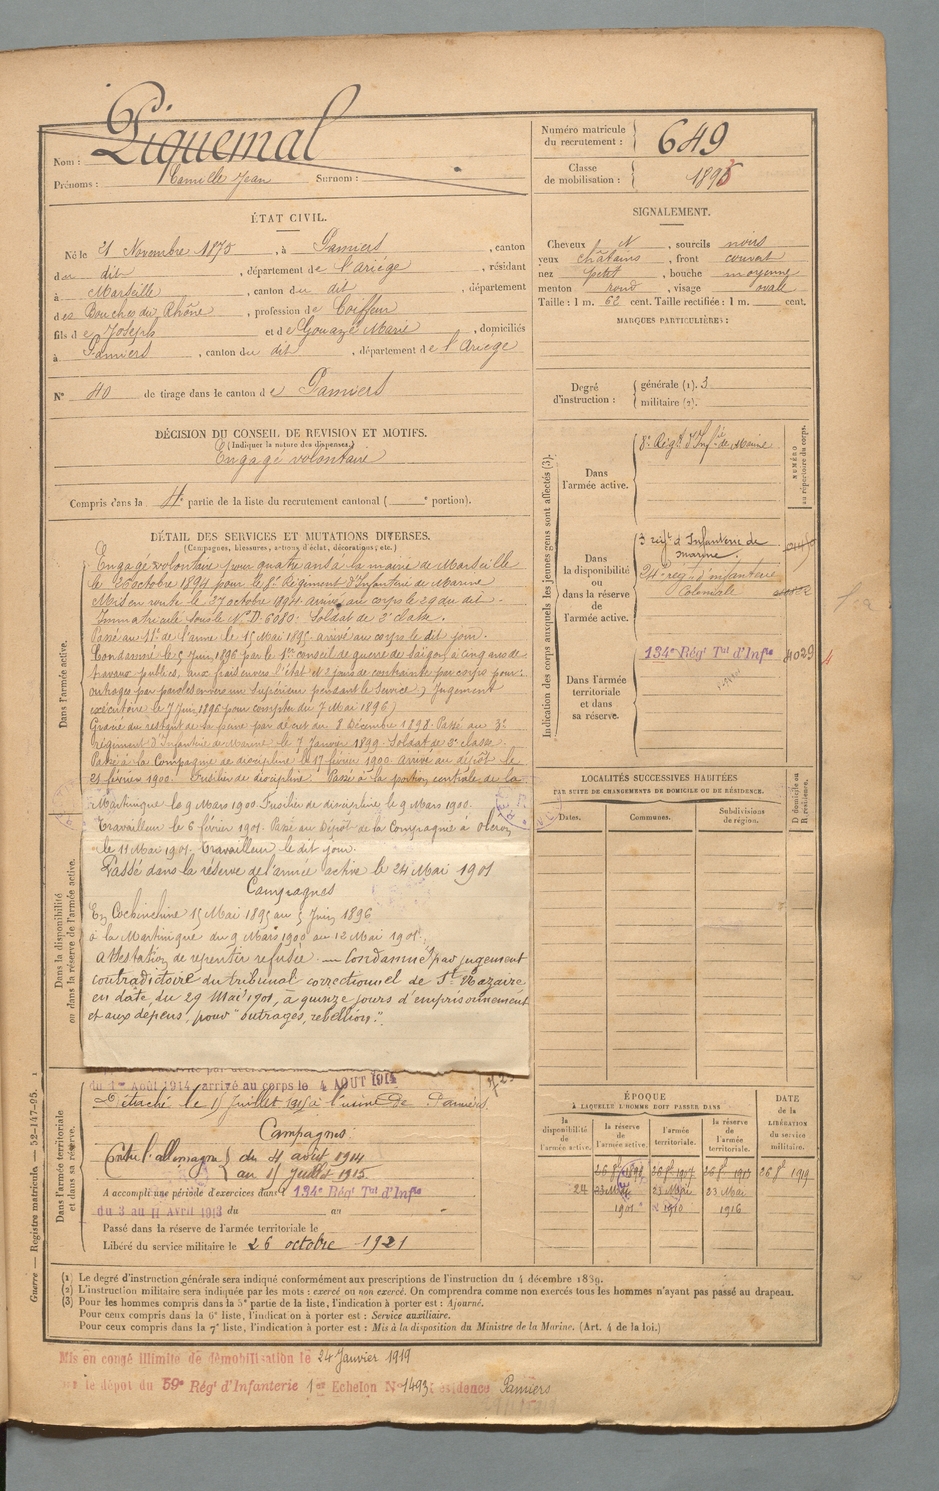 Nom : Piquemal
Prénoms : Camille Jean Surnom :
Numéro matricule du recrutement : 649
Classe de mobilisation : 1893
ÉTAT CIVIL.
Né le 21 Novembre 1873, à Pamiers, canton
du dit, département de l'Ariége, résidant
à Marseille, canton du dit, département
des Bouches du Rhône, profession de Coiffeur
fils de Joseph et de Gouazé Marie, domiciliés
à Pamiers, canton du dit, département de l'Ariege
N° 40 de tirage dans le canton de Pamiers
DÉCISION DU CONSEIL DE REVISION ET MOTIFS.
(Indiquer la nature des dispenses.)
Engagé volontaire
Compris dans la 4e partie de la liste du recrutement cantonal ( e portion).
SIGNALEMENT.
Cheveux N, sourcils noirs
yeux châtains, front couvert
nez petit, bouche moyenne
menton rond, visage ovale
Taille : 1 m. 62 cent. Taille rectifiée : 1 m. cent.
MARQUES PARTICULIÈRES :
Degré d'instruction : générale (1). 3
militaire (2).
Indication des corps auxquels les jeunes gens sont affectés (3).
NUMÉRO au répertoire du corps.
Dans l'armée active.
8e Régt d'Infie de Marine
Dans la disponibilité ou dans la réserve de l'armée active.
3 regt d'Infanterie de marine.
24e regt d'infanterie Coloniale
Dans l'armée territoriale et dans sa réserve.
134e Régt Tal d'Infie 4029
DÉTAIL DES SERVICES ET MUTATIONS DIVERSES.
(Campagnes, blessures, actions d'éclat, décorations, etc.)
Dans l'armée active.
Engagé volontaire pour quatre ans à la mairie de Marseille
le 26 octobre 1894 pour le 8e Régiment d'Infanterie de Marine
Mis en route le 27 octobre 1894 arrivé au corps le 29 du dit.
Immatriculé sous le N° D. 6080. Soldat de 2e classe.
Passé au 11e de l'arme le 15 Mai 1895 arrivé au corps le dit jour.
Condamné le 5 Juin 1896 par le 1er conseil de guerre de Saïgon, à cinq ans de
travaux publics, aux frais envers l'état et 2 jours de contrainte par corps pour :
outrages par paroles envers un supérieur pendant le service (Jugement
exécutoire le 7 Juin 1896 pour compter du 7 Mai 1896)
Gracié du restant de sa peine par décret du 8 Décembre 1898. Passé au 3e
Régiment d'Infanterie de Marine le 7 Janvier 1899. Soldat de 2e classe.
Passé à la Compagnie de discipline le 17 février 1900 arrivé au dépôt le
21 février 1900. Fusilier de discipline. Passé à la portion centrale de la
Martinique le 9 Mars 1900 Fusilier de discipline le 9 Mars 1900.
Travailleur le 6 février 1901. Passé au Dépôt de la Compagnie à Oléron
le 11 Mai 1901. Travailleur le dit jour.
Dans la disponibilité ou dans la réserve de l'armée active.
Passé dans la réserve de l'armée active le 24 Mai 1901
Campagnes
En Cochinchine 15 Mai 1895 au 5 Juin 1896
à la Martinique du 9 Mars 1900 au 12 Mai 1901.
Attestation de repentir refusée. — Condamné par jugement
contradictoire du tribunal correctionnel de St Nazaire
en date, du 29 Mai 1901, à quinze jours d'emprisonnement
et aux dépens, pour "outrages, rebellion".
Dans l'armée territoriale et dans sa réserve.
du 1er Août 1914, arrivé au corps le 4 AOUT 1914
Détaché le 15 Juillet 1915 à l'usine de Pamiers
Campagnes :
Contre l'allemagne du 4 août 1914
au 15 Juillet 1915
A accompli une période d'exercices dans le 134e Régt Tal d'Infie
du 3 au 11 Avril 1913 du au
Passé dans la réserve de l'armée territoriale le
Libéré du service militaire le 26 octobre 1921
LOCALITÉS SUCCESSIVES HABITÉES
PAR SUITE DE CHANGEMENTS DE DOMICILE OU DE RÉSIDENCE.
Dates. Communes. Subdivisions de région. D domicile ou R. résidence.
ÉPOQUE
À LAQUELLE L'HOMME DOIT PASSER DANS
DATE de la LIBÉRATION du service militaire.
la disponibilité de l'armée active. la réserve de l'armée active. l'armée territoriale. la réserve de l'armée territoriale.
26 8bre 1907 26 8bre 1913 26 8bre 1919
24 23 Mai 23 Mai 23 Mai
1901 1910 1916
(1) Le degré d'instruction générale sera indiqué conformément aux prescriptions de l'instruction du 4 décembre 1889.
(2) L'instruction militaire sera indiquée par les mots : exercé ou non exercé. On comprendra comme non exercés tous les hommes n'ayant pas passé au drapeau.
(3) Pour les hommes compris dans la 5e partie de la liste, l'indication à porter est : Ajourné.
Pour ceux compris dans la 6e liste, l'indication à porter est : Service auxiliaire.
Pour ceux compris dans la 7e liste, l'indication à porter est : Mis à la disposition du Ministre de la Marine. (Art. 4 de la loi.)
Guerre — Registre matricule — 52-147-95.
Mis en congé illimité de démobilisation le 24 Janvier 1919
le dépot du 59e Régt d'Infanterie 1er Echelon N° 1493 résidence Pamiers